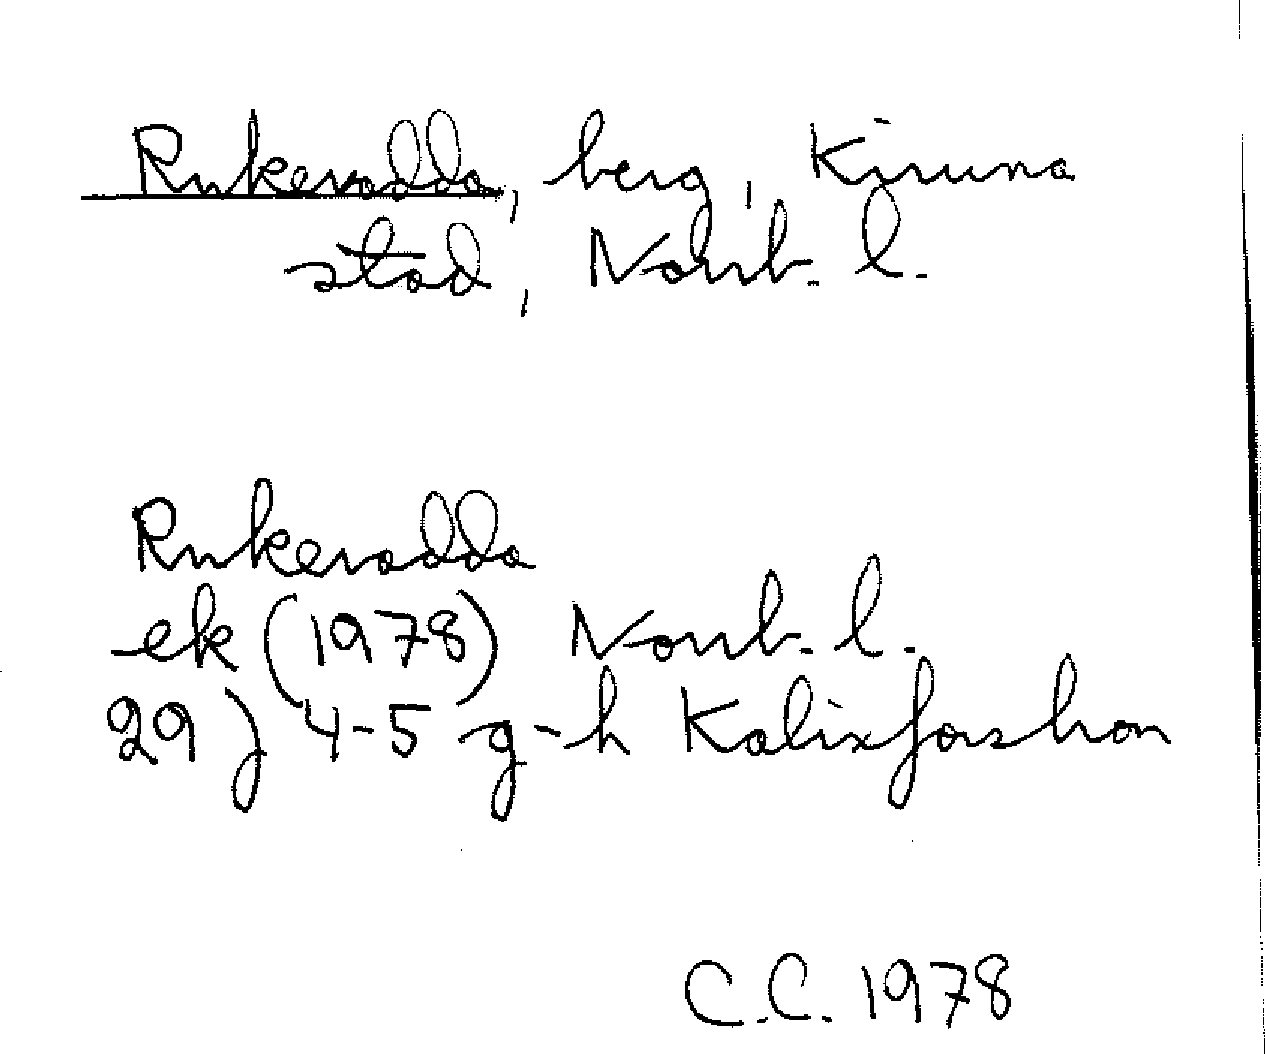 Rukevadda, berg, Kiruna
stad, Norrb. l.
Rukevadda
ek (1978) Norrb. l.
29 J 4-5 g-h Kalixforshon
C.C. 1978